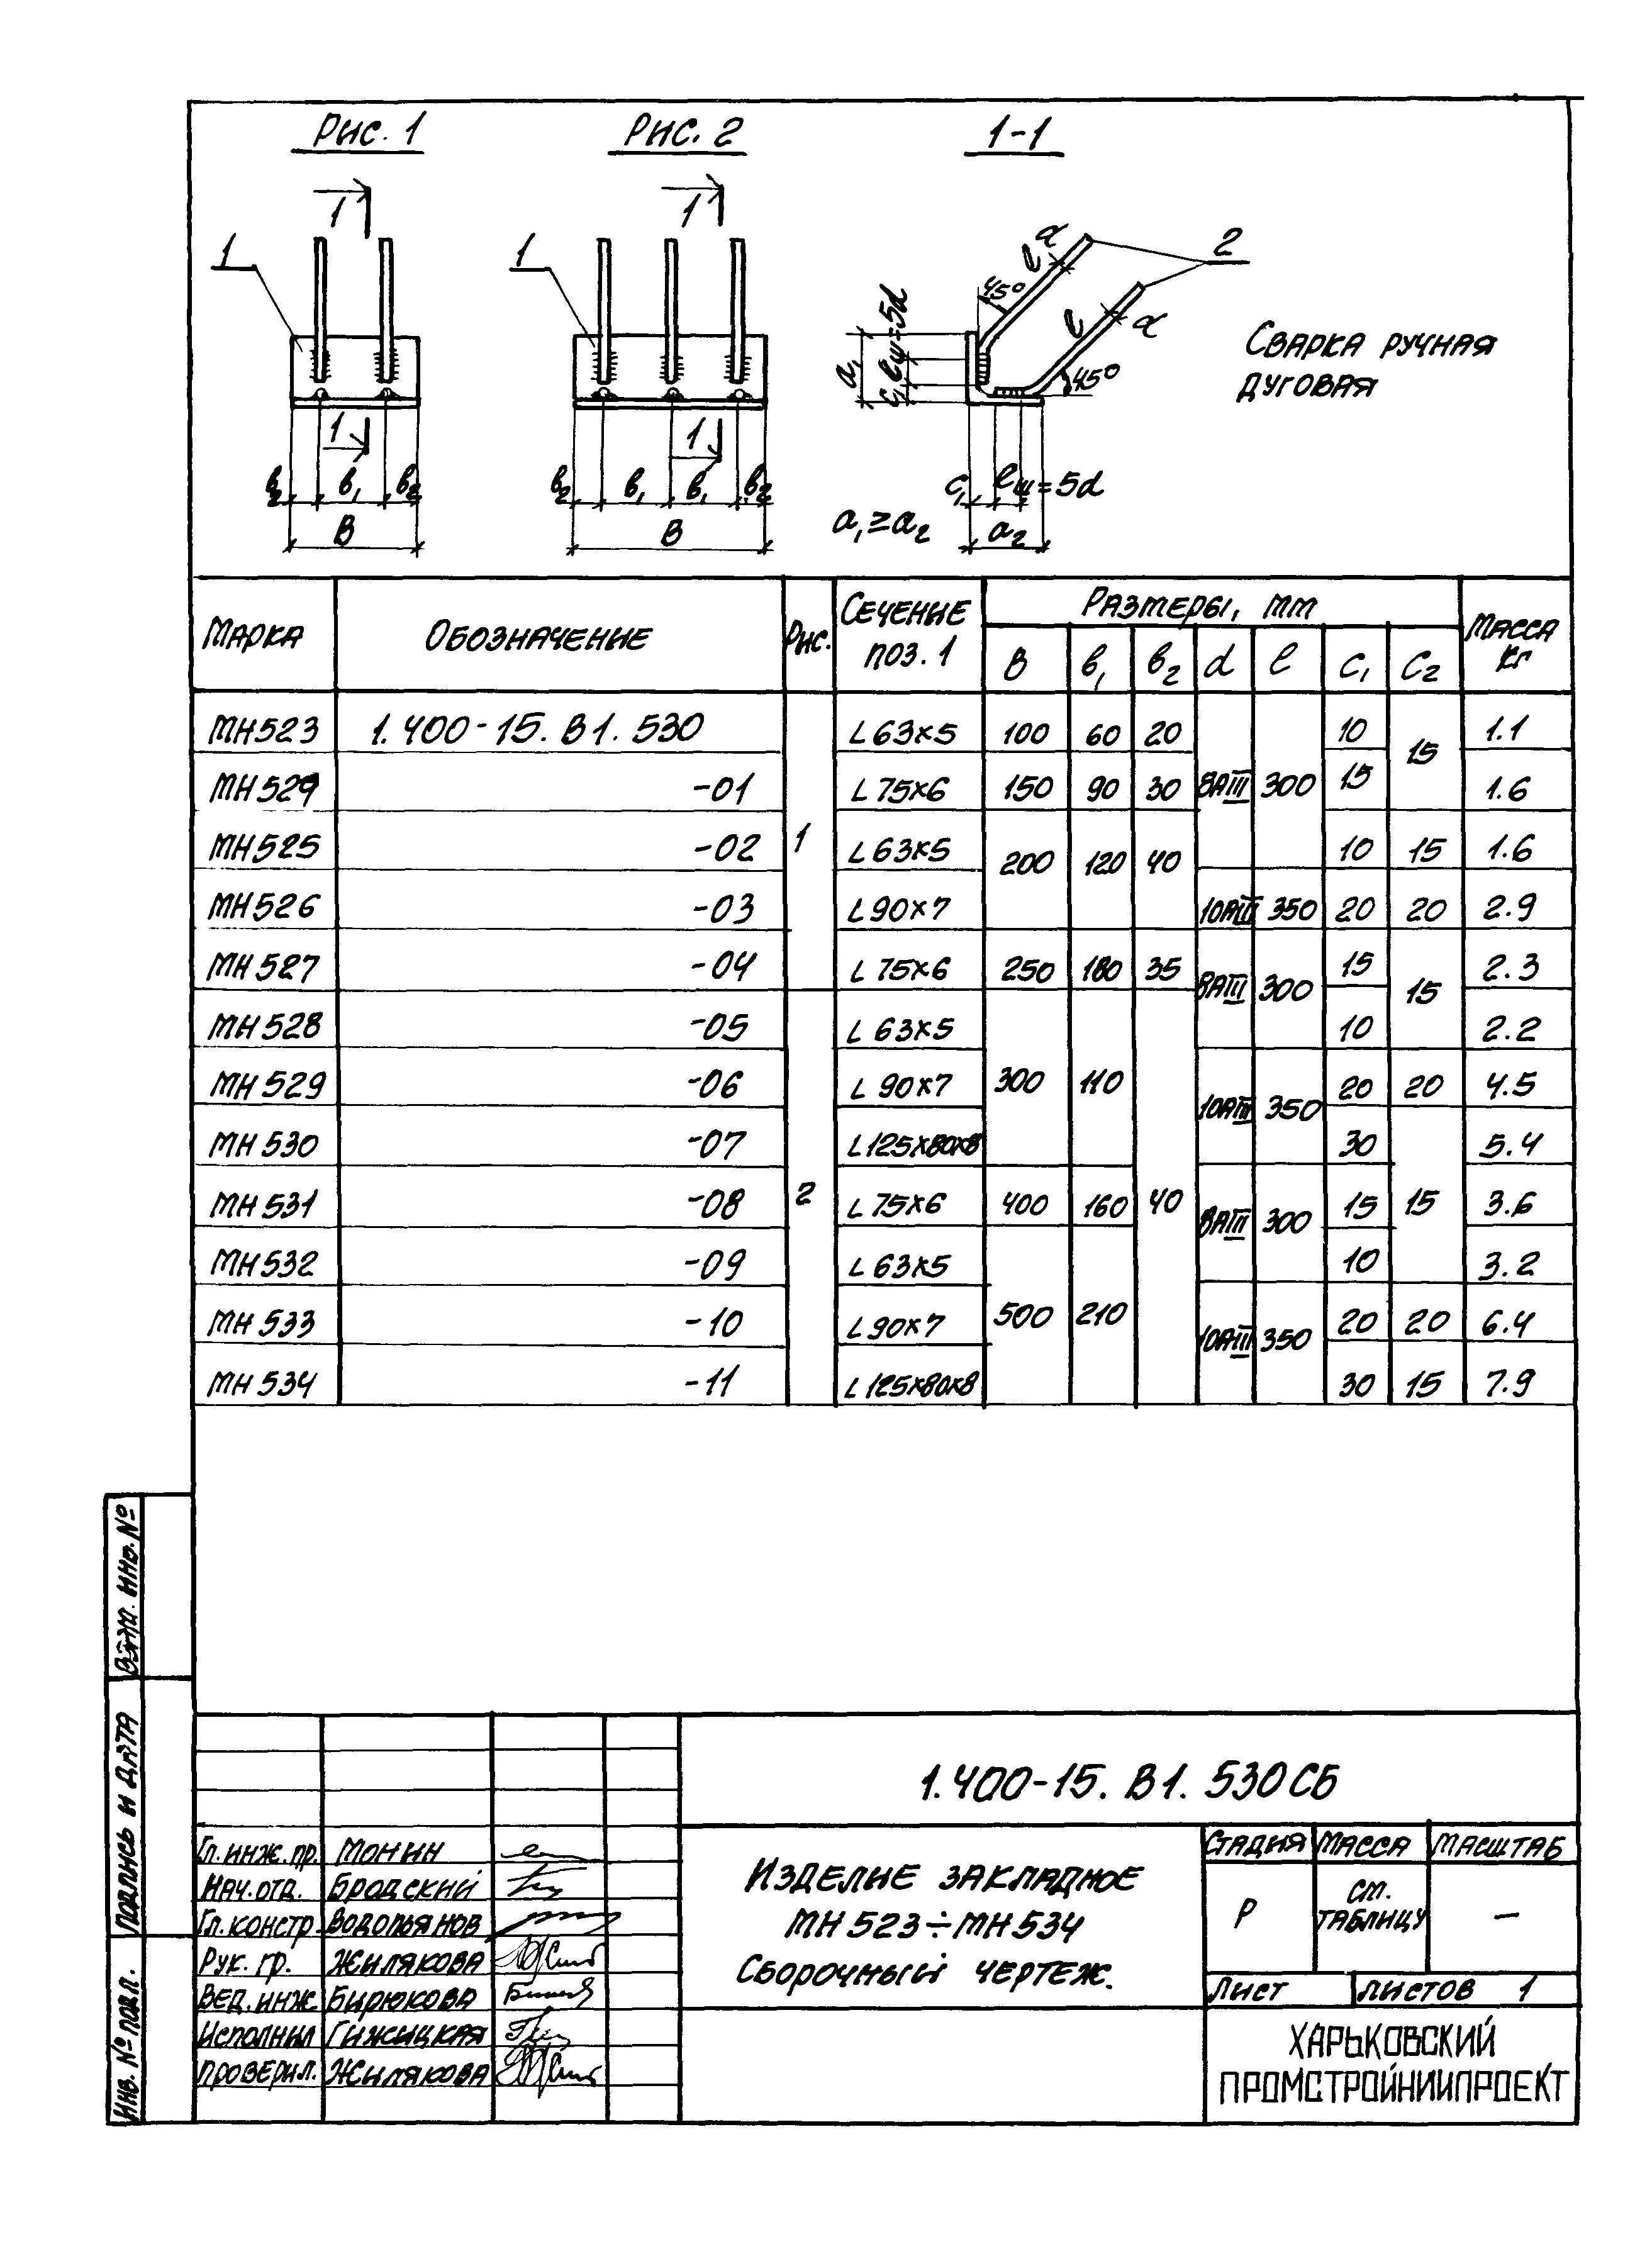 Рис. 1 Рис. 2 1-1
1 1
1 1 2
l d 45°
l d 45°
a₁ c₁ lш=5d
Сварка ручная
дуговая
1 1
в₂ в₁ в₂ в₂ в₁ в₁ в₂ c₁ lш=5d
В В a₁≥a₂ a₂
Марка Обозначение Рис. Сечение поз. 1 Размеры, мм Масса кг
В в₁ в₂ d l c₁ c₂
МН523 1.400-15.В1.530 1 L63x5 100 60 20 8АIII 300 10 15 1.1
МН529 -01 L75x6 150 90 30 15 1.6
МН525 -02 L63x5 200 120 40 10 15 1.6
МН526 -03 L90x7 10АIII 350 20 20 2.9
МН527 -04 L75x6 250 180 35 8АIII 300 15 15 2.3
МН528 -05 2 L63x5 300 110 40 10 2.2
МН529 -06 L90x7 10АIII 350 20 20 4.5
МН530 -07 L125x80x8 30 15 5.4
МН531 -08 L75x6 400 160 8АIII 300 15 3.6
МН532 -09 L63x5 500 210 10 3.2
МН533 -10 L90x7 10АIII 350 20 20 6.4
МН534 -11 L125x80x8 30 15 7.9
Взам. инв. №
Подпись и дата
Инв. № подл.
1.400-15.В1.530СБ
Гл. инж. пр. Монин
Нач. отд. Бродский
Гл. констр. Водопьянов
Рук. гр. Жилякова
Вед. инж Бирюкова
Исполнил Гижицкая
Проверил. Жилякова
Изделие закладное
МН523÷МН534
Сборочный чертеж.
Стадия Масса Масштаб
Р См. таблицу —
Лист Листов 1
ХАРЬКОВСКИЙ
ПРОМСТРОЙНИИПРОЕКТ